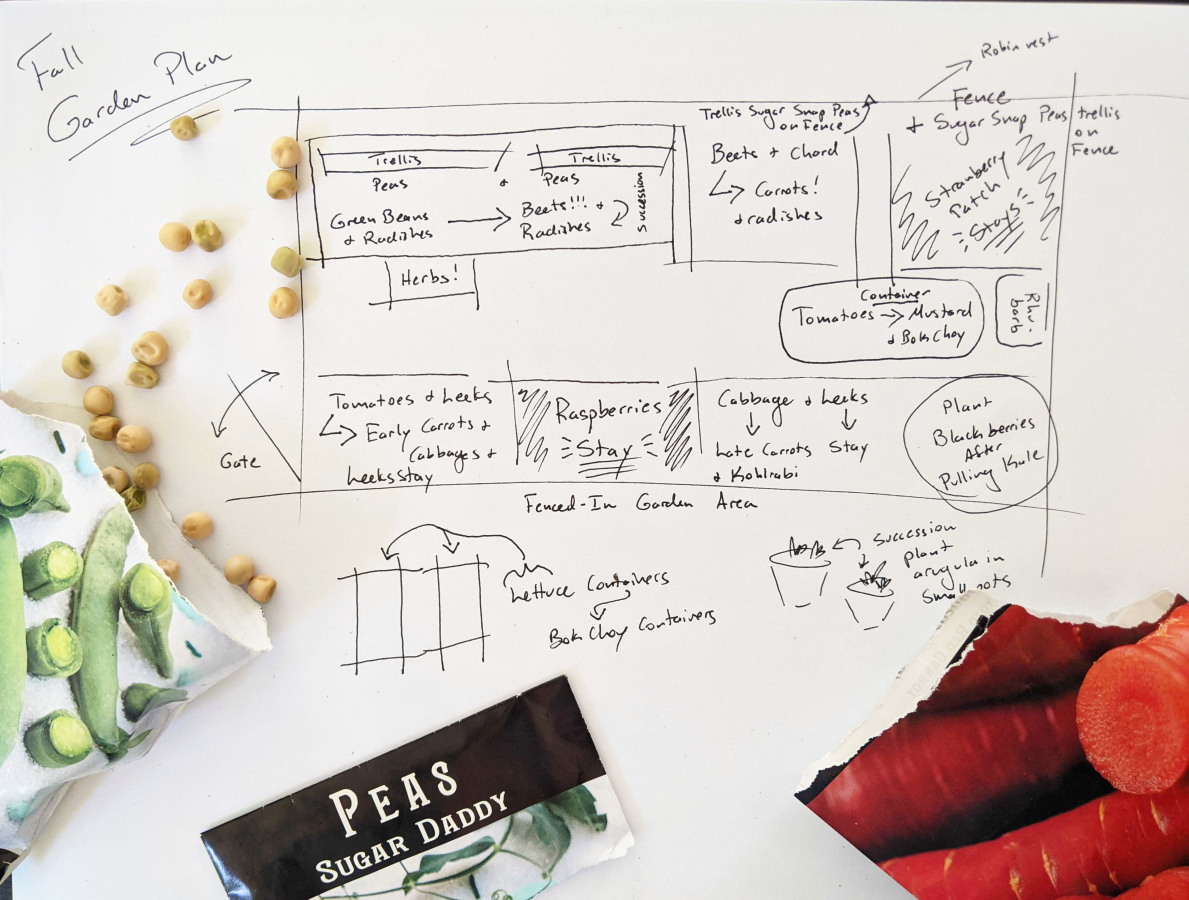 Fall
Garden Plan
Robin nest
Fence
+ Sugar Snap Peas
trellis
on
Fence
Trellis Sugar Snap Peas
on Fence
Trellis
Trellis
Peas
+
Peas
Green Beans
+ Radishes
Beets!!! +
Radishes
Succession
Herbs!
Beets + Chard
Carrots!
+ radishes
Strawberry
Patch
Stays
Container
Tomatoes → Mustard
+ Bok Choy
Rhu-
barb
Gate
Tomatoes + Leeks
Early Carrots +
Cabbages +
Leeks Stay
Raspberries
Stay
Cabbage + Leeks
Late Carrots Stay
+ Kohlrabi
Plant
Blackberries
After
Pulling Kale
Fenced-In Garden Area
Lettuce Containers
Bok Choy Containers
Succession
plant
arugula in
Small pots
PEAS
SUGAR DADDY